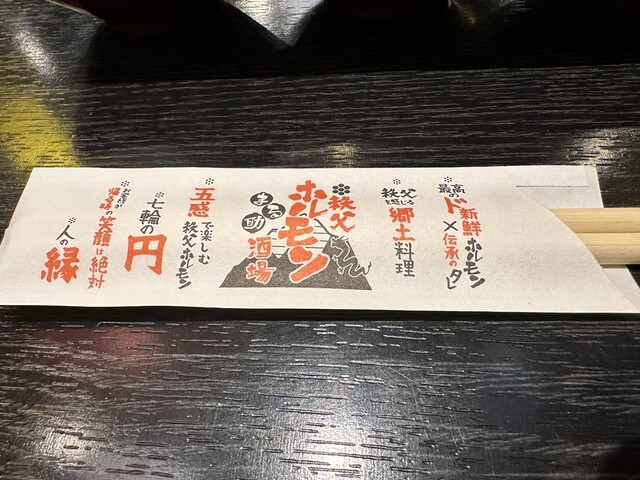 ※最高の
ド新鮮ホルモン
×伝承のタレ
※秩父
を感じる
郷土料理
秩父
ホルモン
酒場
まる助
※五感で楽しむ
秩父ホルモン
※七輪の
円
※お客様が
帰る時の笑顔は絶対
※人の
縁